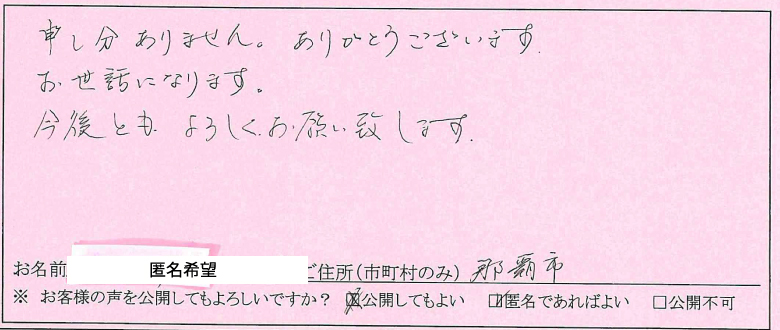 申し分ありません。ありがとうございます.
お世話になります。
今後とも よろしくお願い致します.
お名前 匿名希望 ご住所(市町村のみ) 那覇市
※ お客様の声を公開してもよろしいですか? ☒公開してもよい ☑匿名であればよい □公開不可